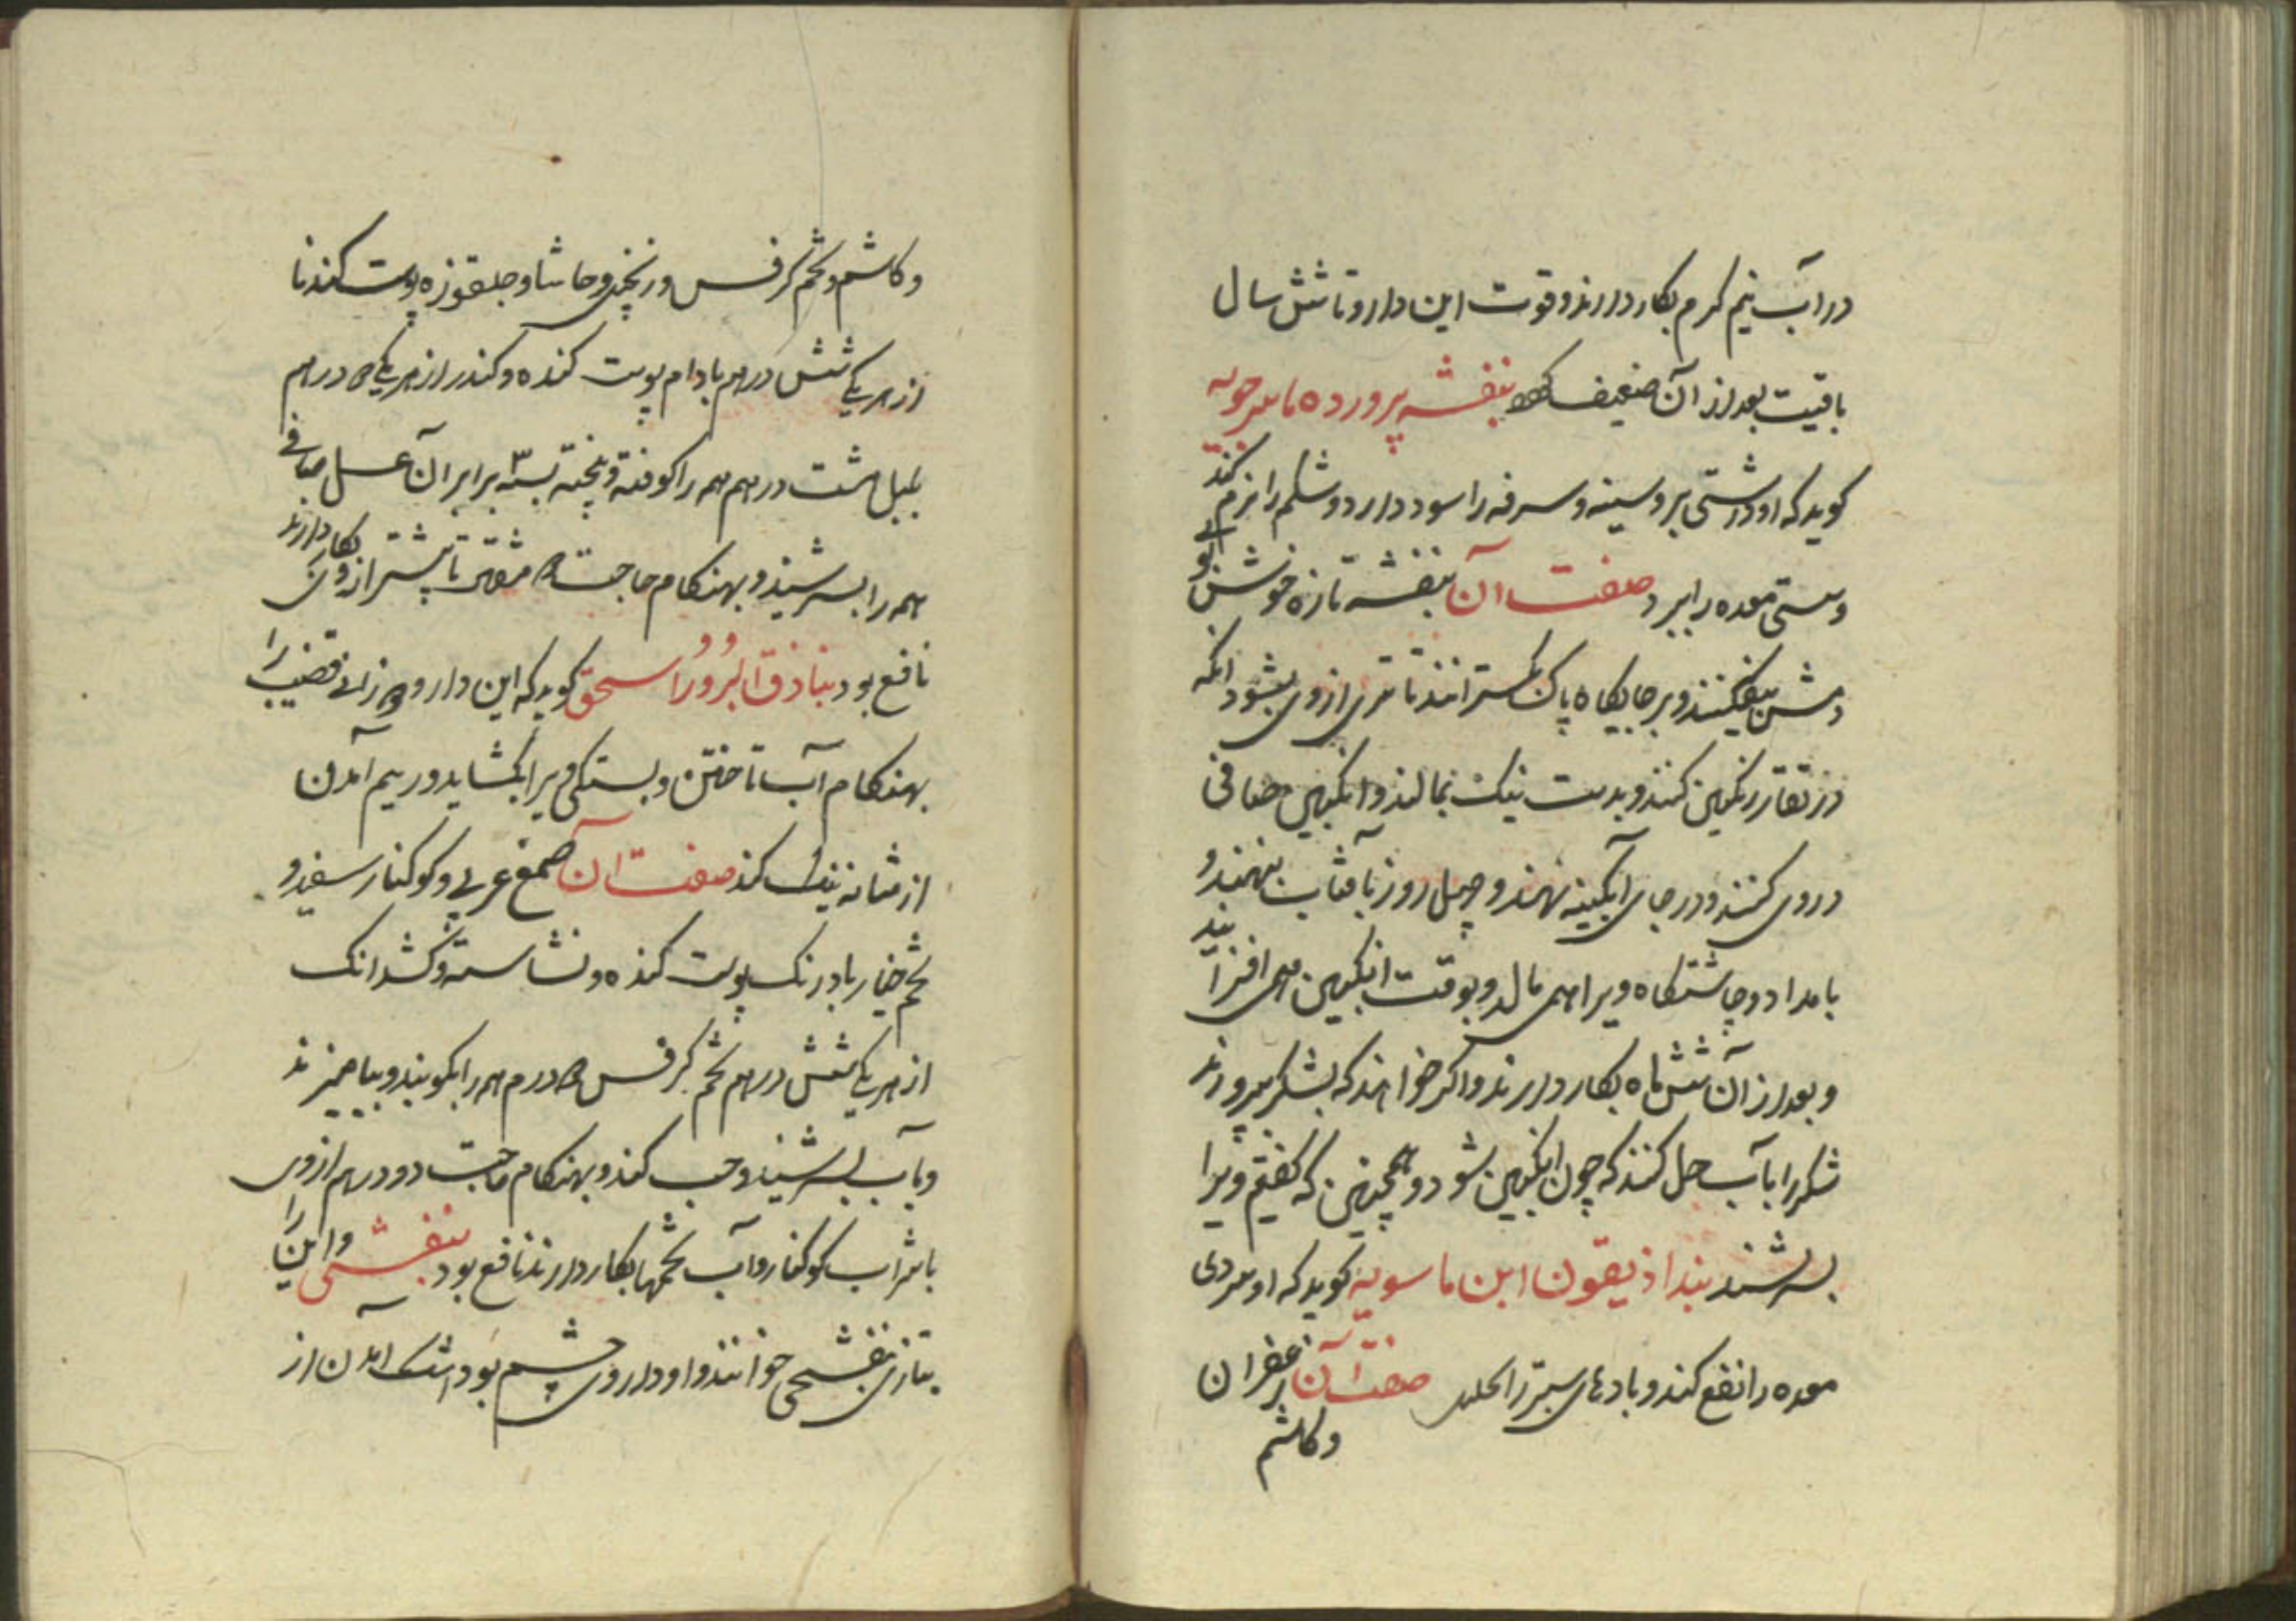 در آب نیم کرم بکار دارند و قوت این دارو تا شش سال
باقیست بعد از آن ضعیف بنفشه پرورده ماسرجویه
کوید که او درشتی بر و سینه و سرفه را سود دارد و شکم را نرم کند
و سستی معده را ببرد صفت آن بنفشه تازه خوش بوی
بیفکنند و بر جایکاه پاک بکسترانند تا تری از وی بشود انکه
در تقار رنکین کنند و بدست نیک بمالند و انکبین صافی
در وی کنند و در جای آبکینه نهند و چهل روز بآفتاب بنهند و
بامداد و چاشتکاه ویرا همی مالد و بوقت انکبین همی افزایند
و بعد از آن شش ماه بکار دارند و اکر خواهند که بشکر پرورند
شکر را بآب حل کنند که چون انکبین شود و همچنین که کفتیم ویرا
بسرشند بنداذیقون ابن ماسویه کوید که او سردی
معده را نفع کند و بادهای سبرز را صفت آن زعفران
و کاشم
و کاشم و تخم کرفس و زنجبیل و حاشا و جلغوزه پوست کنده
از هر یکی شش درهم بادام پوست کنده و کندر از هر یکی درهم
پلپل هشت درهم همه را کوفته و بیخته بسه برابر آن عسل صافی
همه را بسرشند و بهنکام حاجت مثقال تا بیشتر از وی بکار دارند
نافع بود بنادق البزور اسحق کوید که این دارو قضیب را
بهنکام آب تاختن و بستکی ویرا بکشاید و ریم آمدن
از مثانه نیک کند صفت آن صمغ عربی و کوکنار سفید و
تخم خیار بادرنک پوست کنده و نشاسته و کشدانک
از هر یکی شش درهم تخم کرفس درم همه را بکوبند و بیامیزند
و بآب بسرشند و حب کند و بهنکام حاجت دو درهم از وی
با شراب کوکنار و آب تخمها بکار دارند نافع بود بنفشی و این را
بتازی بنفسجی خوانند و او داروی چشم بود اشک آمدن از